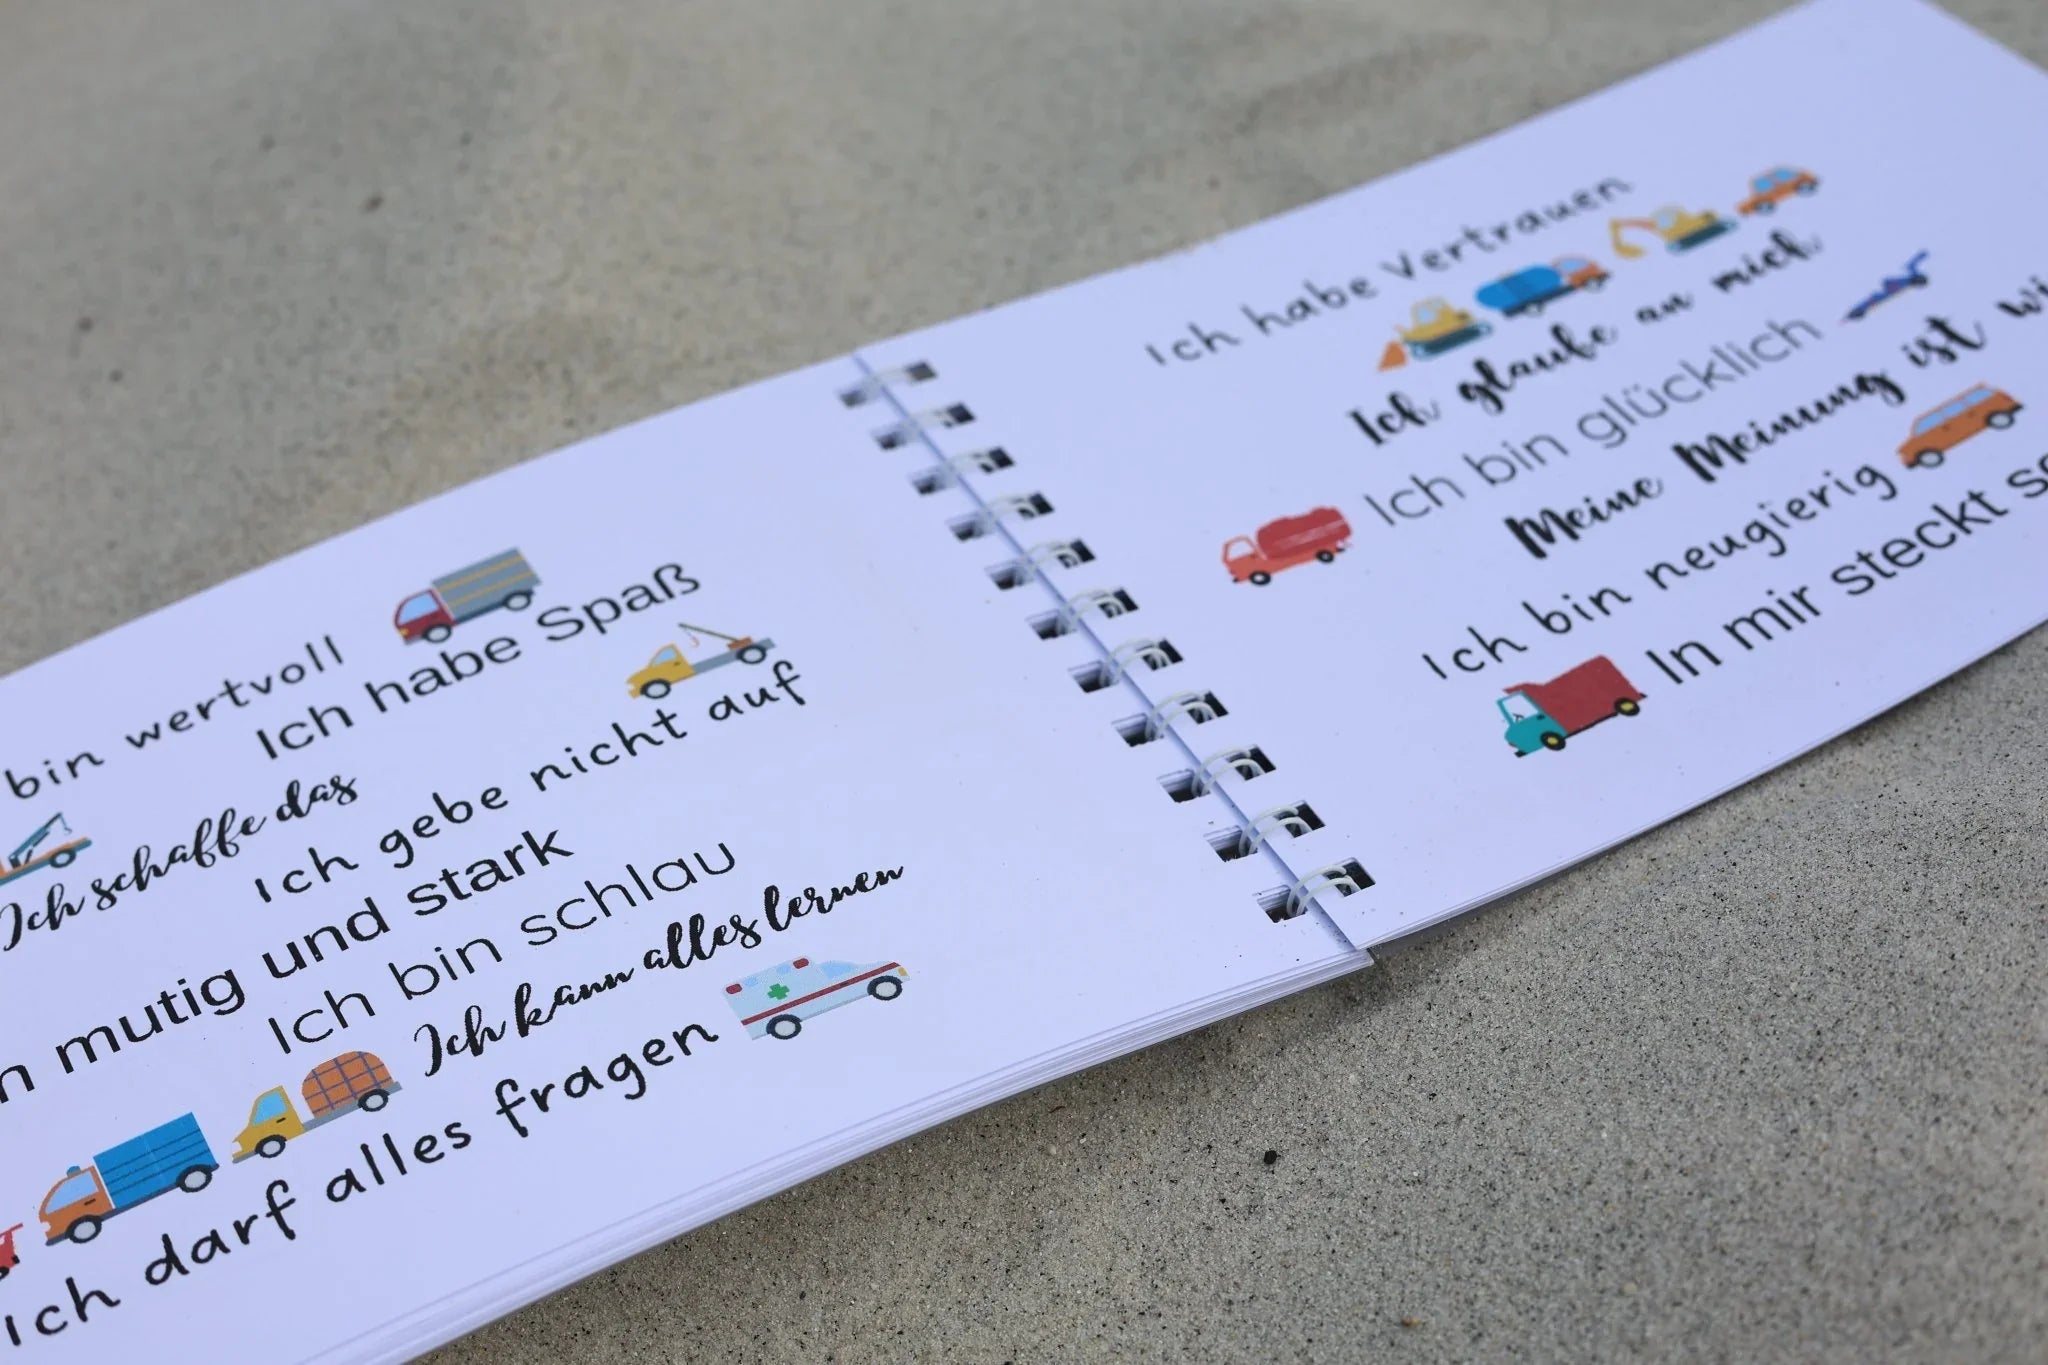 bin wertvoll
Ich habe Spaß
Ich schaffe das
Ich gebe nicht auf
mutig und stark
Ich bin schlau
Ich kann alles lernen
Ich darf alles fragen
Ich habe Vertrauen
Ich glaube an mich
Ich bin glücklich
Meine Meinung ist
Ich bin neugierig
In mir steckt